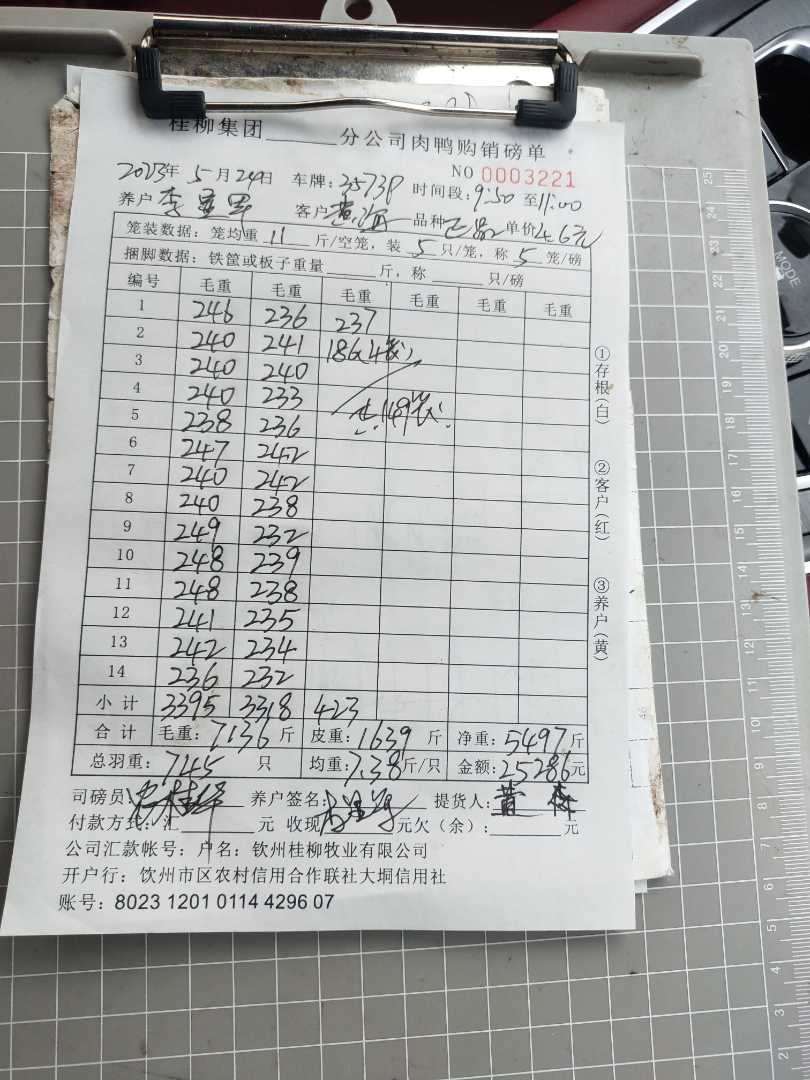 桂柳集团______分公司肉鸭购销磅单
NO 0003221
2023年 5月24日 车牌:35738 时间段:9:50至11:00
养户 李 客户 黄海 品种 正品 单价4.6元
笼装数据:笼均重 11 斤/空笼,装 5 只/笼,称 5 笼/磅
捆脚数据:铁筐或板子重量______斤,称______只/磅
编号 毛重 毛重 毛重 毛重 毛重 毛重
1 246 236 237
2 240 241 186(4笼)
3 240 240
4 240 233 共:149笼
5 238 236
6 247 242
7 240 242
8 240 238
9 249 232
10 248 239
11 248 238
12 241 235
13 242 234
14 236 232
小计 3395 3318 423
合计 毛重:7136斤 皮重:1639斤 净重:5497斤
总羽重:745只 均重:7.38斤/只 金额:25286元
司磅员: 养户签名: 提货人:黄
付款方式:汇______元 收现 元欠(余):______元
公司汇款帐号:户名:钦州桂柳牧业有限公司
开户行:饮州市区农村信用合作联社大垌信用社
账号:8023 1201 0114 4296 07
①存根(白)
②客户(红)
③养户(黄)
MODE
25
24
23
22
21
20
19
18
17
16
15
14
13
12
11
10
9
8
7
6
5
4
3
2